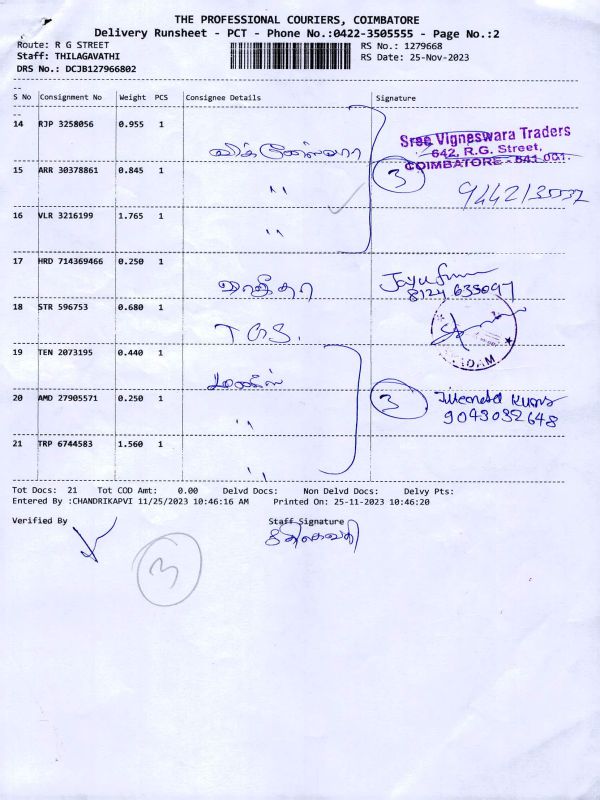 THE PROFESSIONAL COURIERS, COIMBATORE
Delivery Runsheet - PCT - Phone No.:0422-3505555 - Page No.:2
Route: R G STREET
Staff: THILAGAVATHI
DRS No.: DCJB127966802
RS No.: 1279668
RS Date: 25-Nov-2023
S No Consignment No Weight PCS Consignee Details Signature
14 RJP 3258056 0.955 1
விக்னேஸ்வரா
Sree Vigneswara Traders
642, R.G. Street,
COIMBATORE - 641 001.
15 ARR 30378861 0.845 1 " 3
16 VLR 3216199 1.765 1 "
17 HRD 714369466 0.250 1
8124 635097
18 STR 596753 0.680 1
T.O.S.
19 TEN 2073195 0.440 1
20 AMD 27905571 0.250 1 " 3
9043032648
21 TRP 6744583 1.560 1 "
Tot Docs: 21 Tot COD Amt: 0.00 Delvd Docs: Non Delvd Docs: Delvy Pts:
Entered By :CHANDRIKAPVI 11/25/2023 10:46:16 AM Printed On: 25-11-2023 10:46:20
Verified By Staff Signature
3